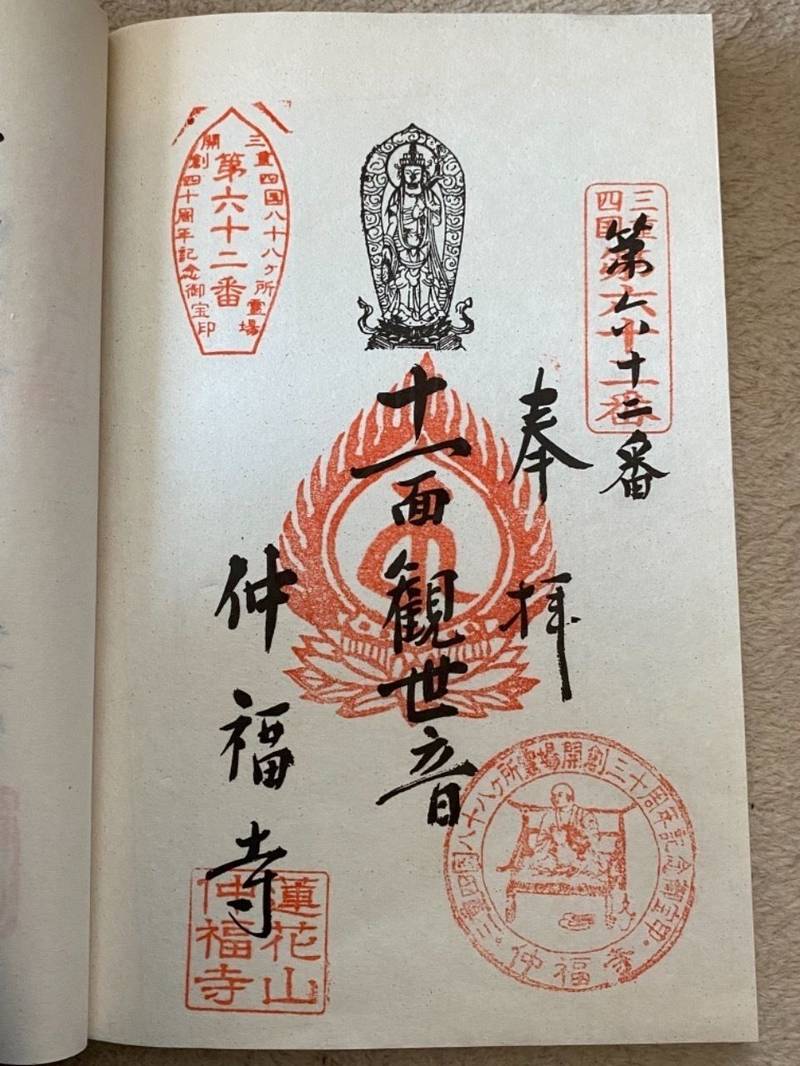 三重
四国
第六十二番
第六十二番
奉拝
十一面観世音
仲福寺
三重四国八十八ヶ所霊場
第六十二番
開創四十周年記念御宝印
三重四国八十八ヶ所霊場開創三十周年記念御宝印
仲福寺
蓮花山
仲福寺